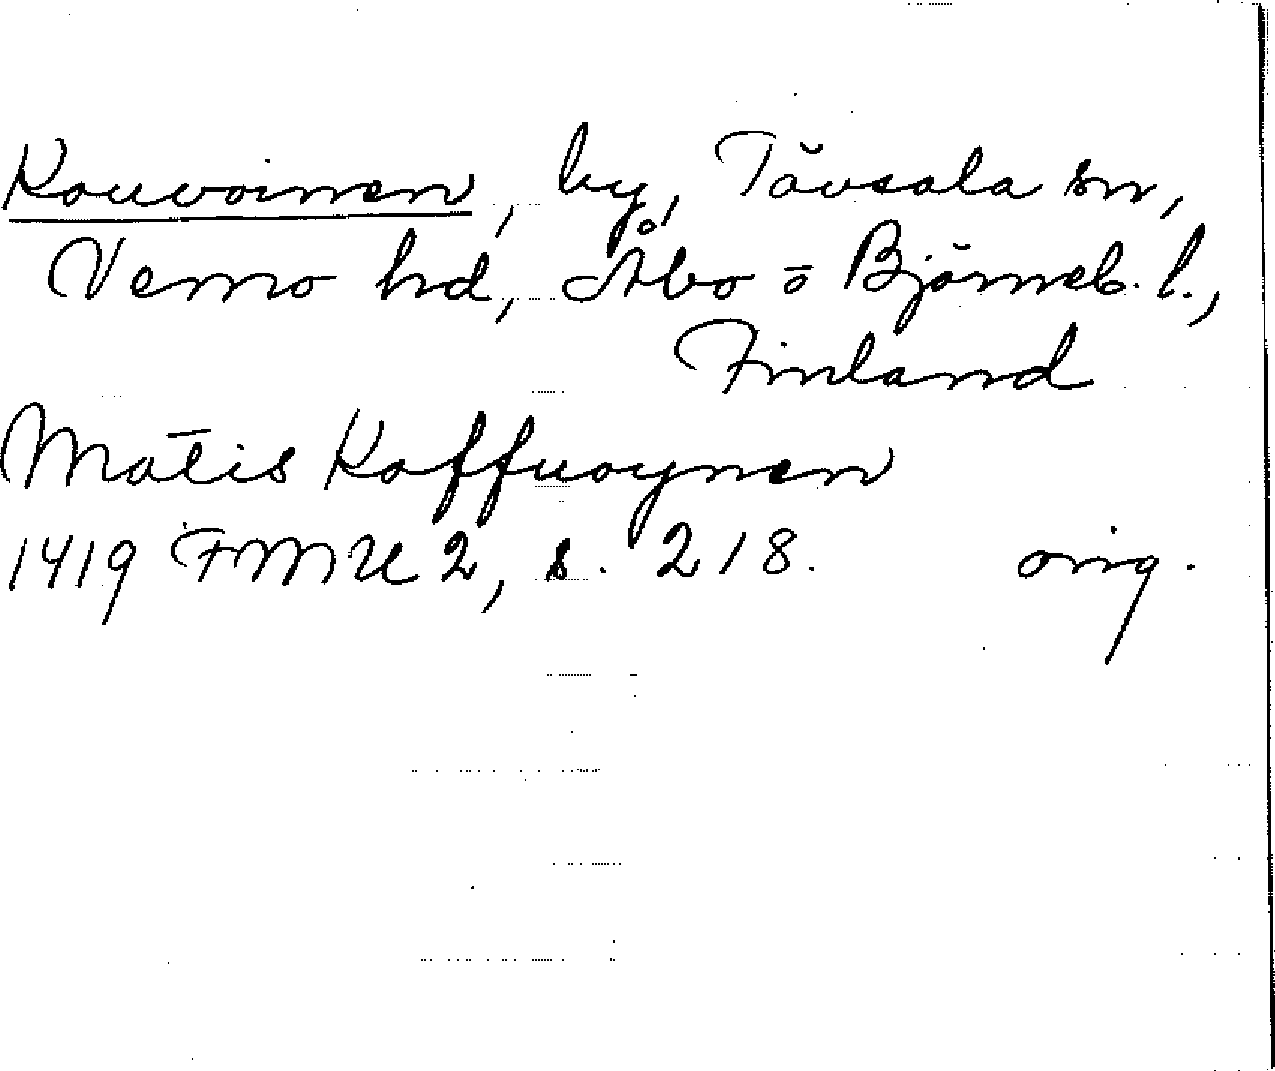 Kouvoinen, by, Tövsala sn,
Vemo hd, Åbo o Björneb. l.,
Finland
Matis Koffuoynen
1419 FMU 2, s. 218. orig.